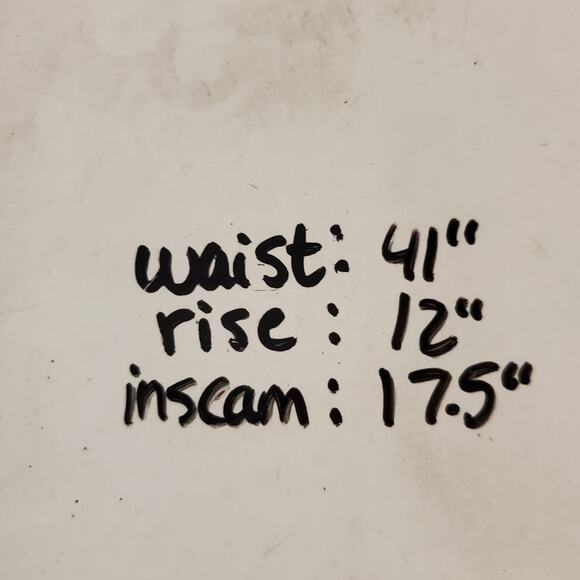 waist: 41"
rise : 12"
inseam : 17.5"